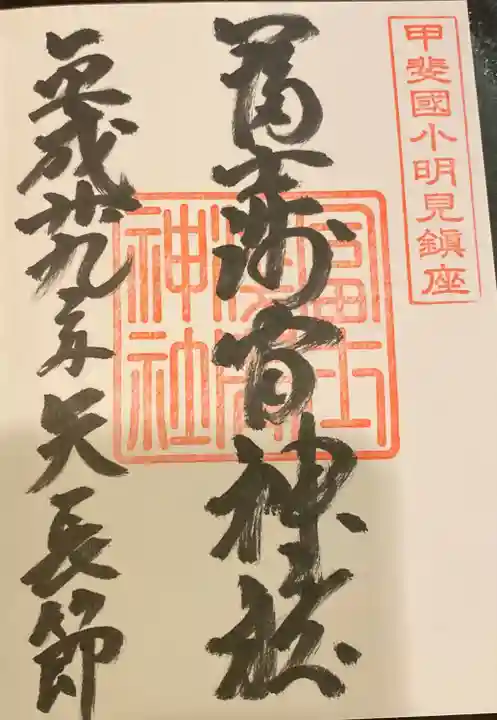 甲斐國小明見鎮座
冨士浅間神社
富士
淺間
神社
平成廿九年天長節